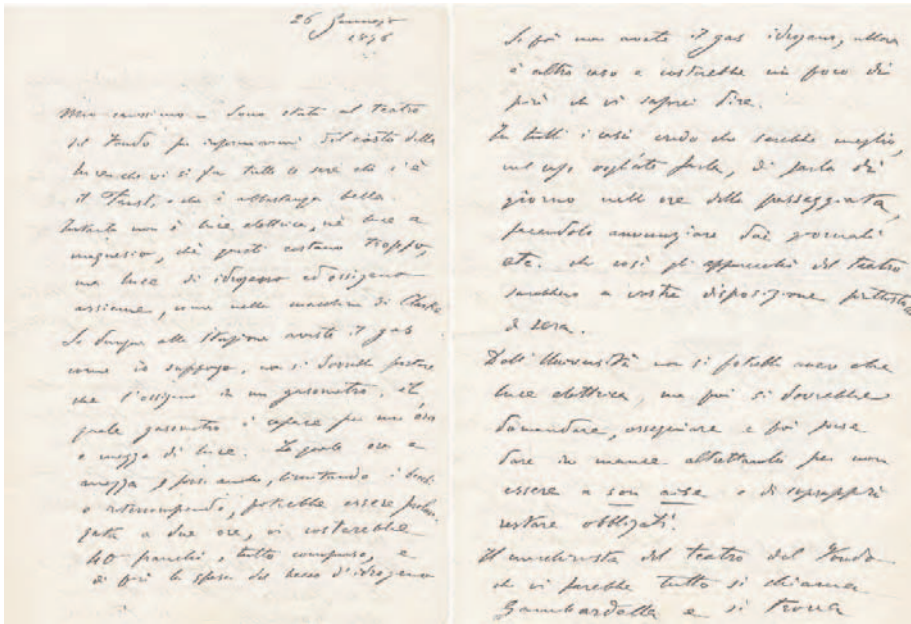 26 Gennajo
1876
Mio carissimo — Sono stato al teatro
del Fondo per informarmi del costo della
luce che vi si fa tutte le sere che c'è
il Faust, e che è abbastanza bella.
non è luce elettrica, nè luce a
magnesio, chè questi costano troppo,
ma luce di idrogeno ed ossigeno
assieme, come nelle macchine di
Se dunque alla Stazione avete il gas
come io suppogo, non si dovrebbe portare
che l'ossigeno in un gasometro, il
quale gasometro è capace per una ora
e mezza di luce. La quale ora e
mezza, forse anche, limitando i
o interrompendo, potrebbe essere prolun
gata a due ore, vi costerebbe
40 franchi, tutto compreso, e
di più la spesa del becco d'idrogeno
Se poi non avete il gas idrogeno, allora
è altro caso e costerebbe un poco di
più che vi saprei dire.
In tutti i casi credo che sarebbe meglio,
nel caso vogliate farla, di farla di
giorno nelle ore della passeggiata,
facendolo annunziare dai giornali
etc. chè così gli apparecchi del teatro
sarebbero a vostra disposizione piuttosto che
di sera.
Dall'Università non si potrebbe avere che
luce elettrica, ma poi si dovrebbe
domandare, ossequiare e poi forse
dare in mance altrettanto per non
essere a son aise e di soprappiù
restare obbligati.
Il macchinista del teatro del Fondo
che vi farebbe tutto si chiama
Gambardella e si trova